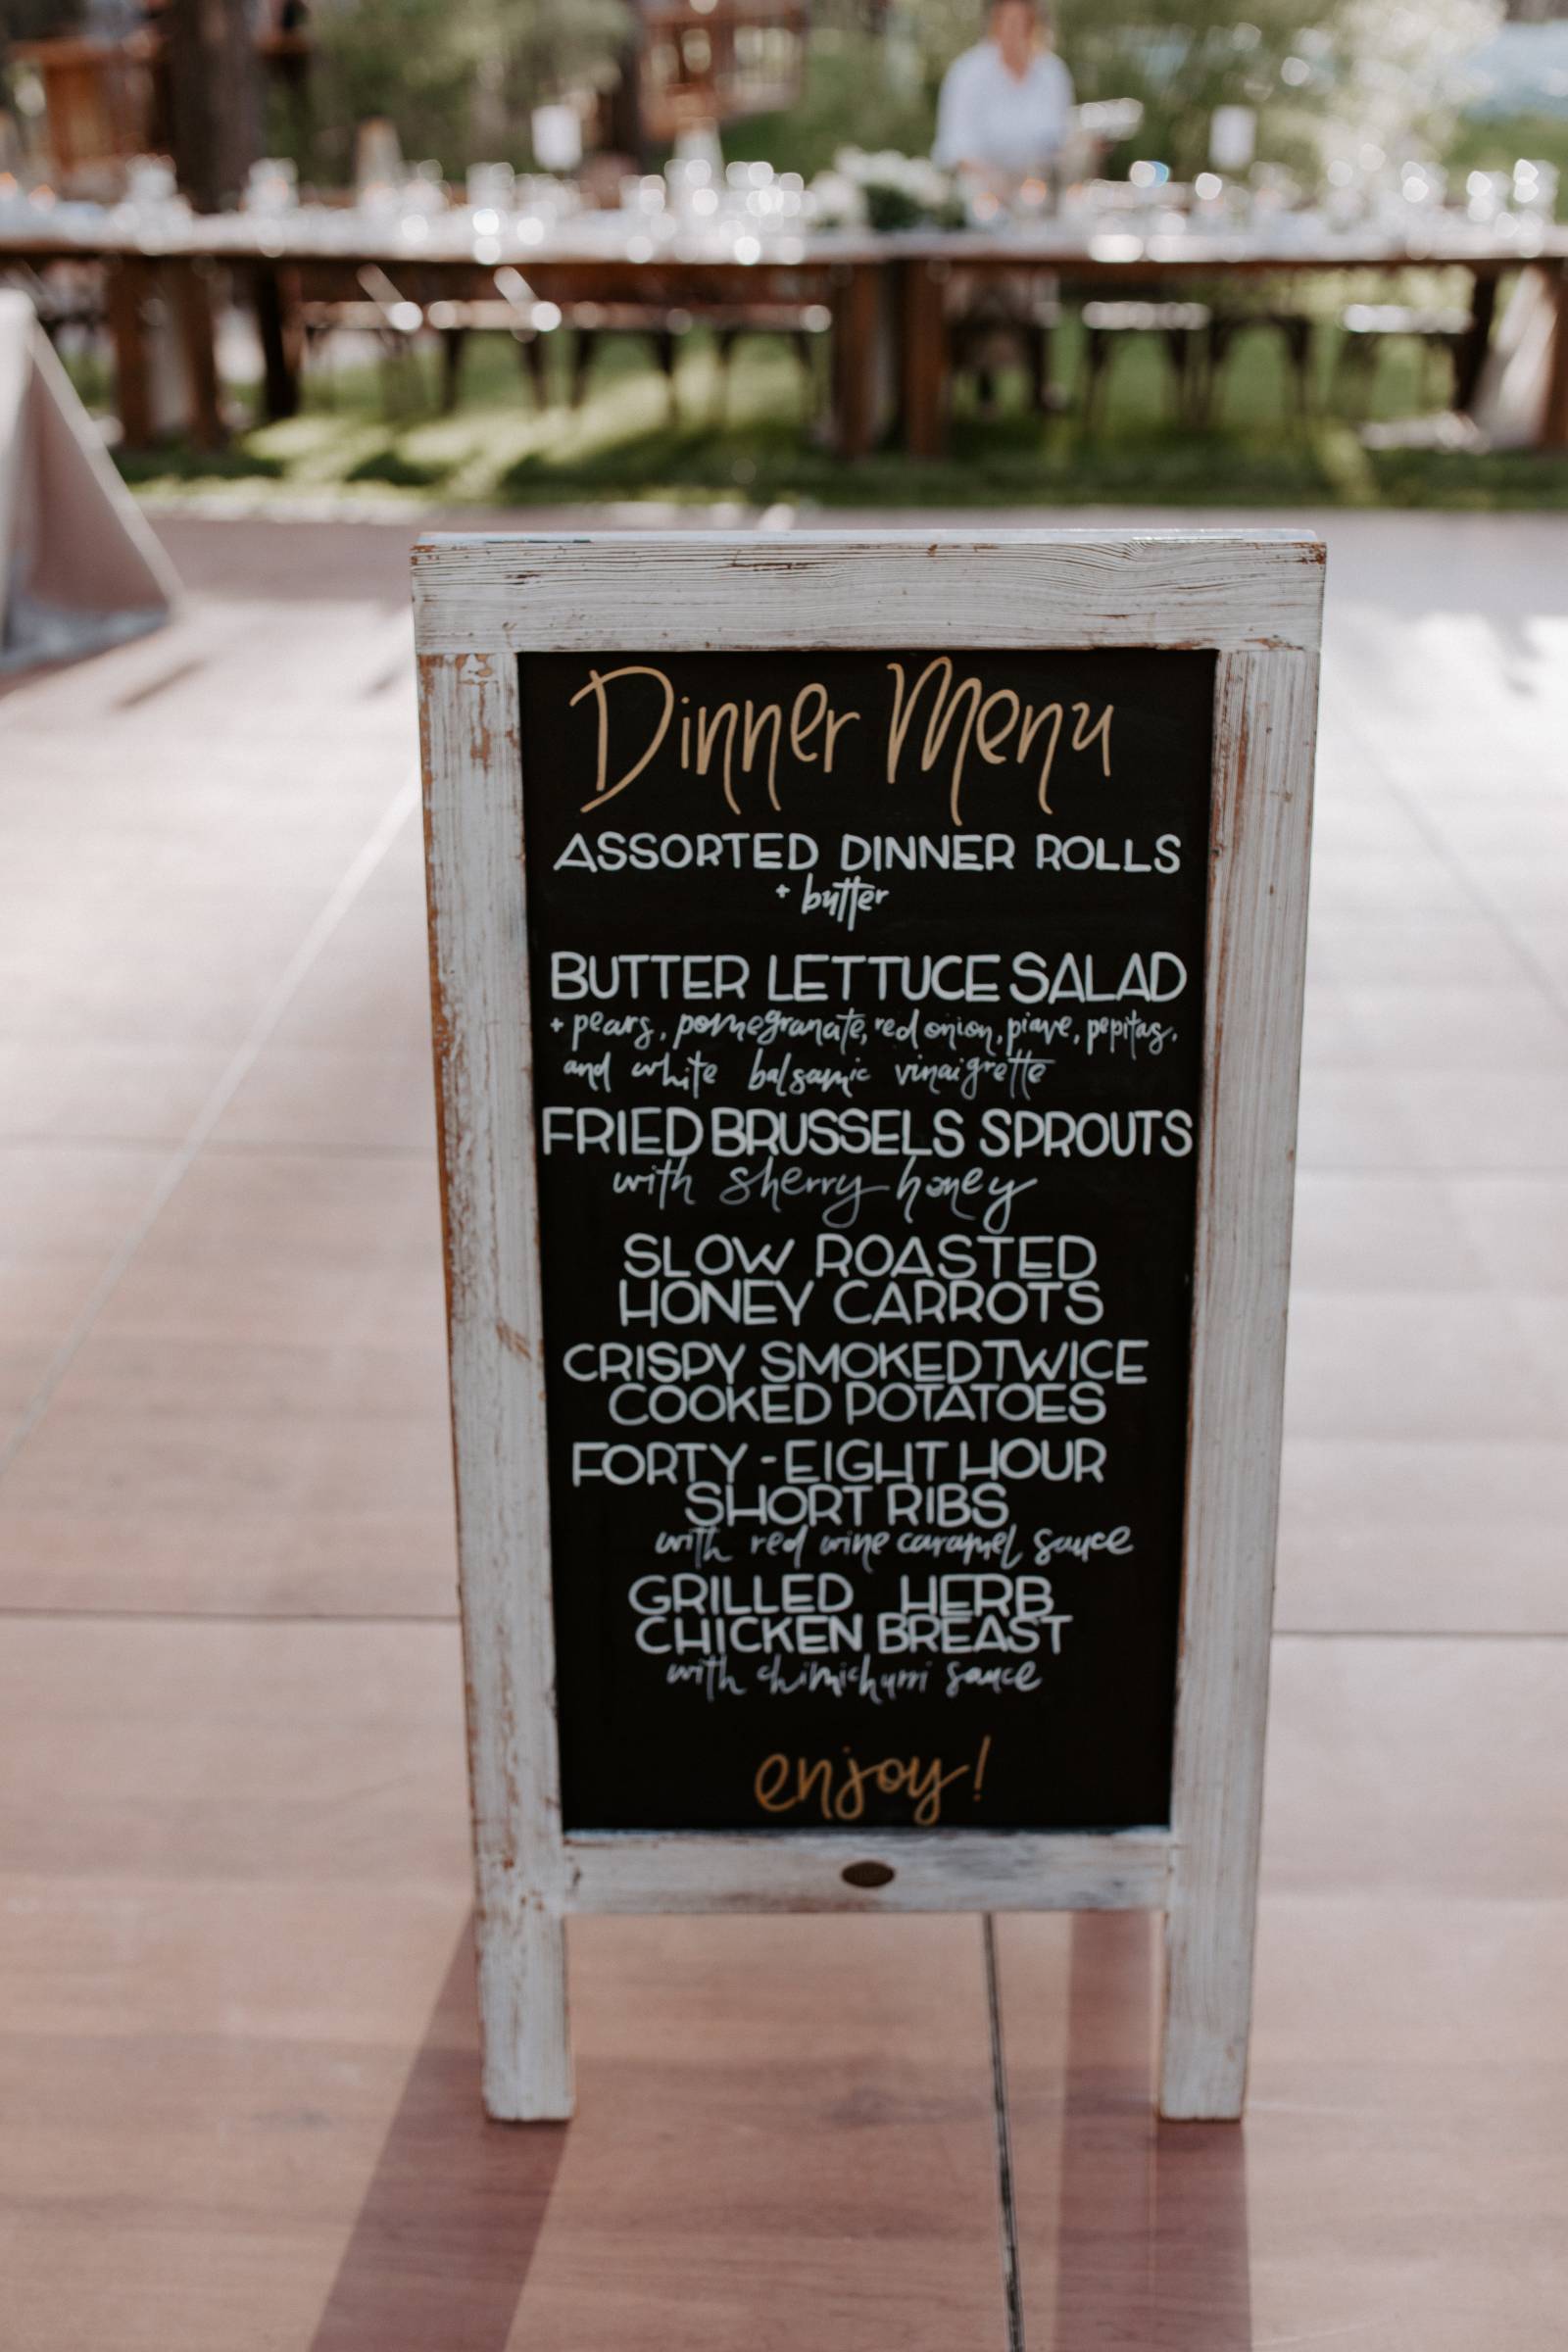 Dinner Menu
ASSORTED DINNER ROLLS
+ butter
BUTTER LETTUCE SALAD
+ pears, pomegranate, red onion, piave, pepitas,
and white balsamic vinaigrette
FRIED BRUSSELS SPROUTS
with sherry honey
SLOW ROASTED
HONEY CARROTS
CRISPY SMOKED TWICE
COOKED POTATOES
FORTY-EIGHT HOUR
SHORT RIBS
with red wine caramel sauce
GRILLED HERB
CHICKEN BREAST
with chimichurri sauce
enjoy!